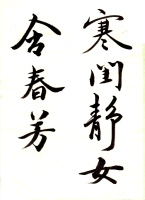 寒闺静女
含春芳